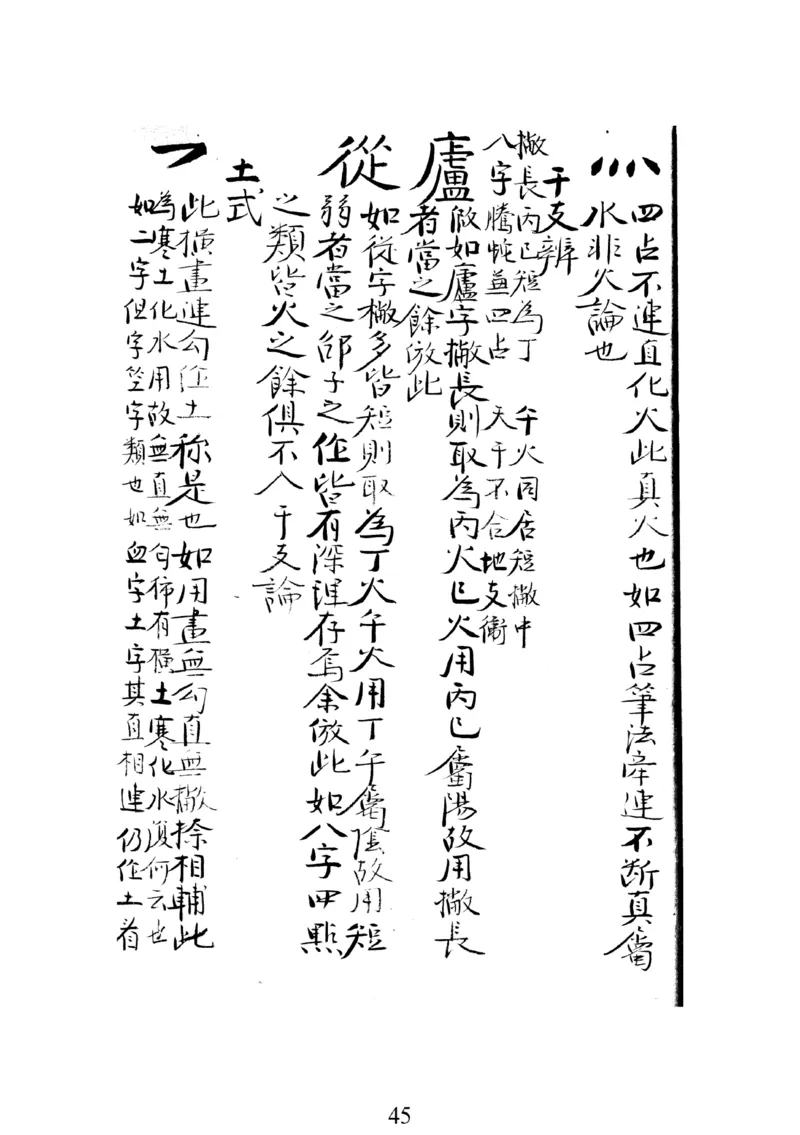 灬 四占不連直化火此真火也如四占筆法牽連不断真屬
水非火論也
干支辨
撇長丙巳短為丁 午火同居短撇中
八字騰蛇並四占 天干不合地支衝
廬 倣如廬字撇長則取為丙火巳火用丙巳屬陽故用撇長
者當之餘倣此
從 如從字撇多皆短則取為丁火午火用丁午屬陰故用短
弱者當之邵子之作皆有深理存焉余倣此如八字四點
之類皆火之餘俱不入干支論
土式
此橫畫連勾作土称是也如用畫無勾直無撇捺相輔此
為寒土化水用故無直無勾希有橫土寒化水復何云也
如二字但字竺字類也如血字土字其直相連仍作土看
45